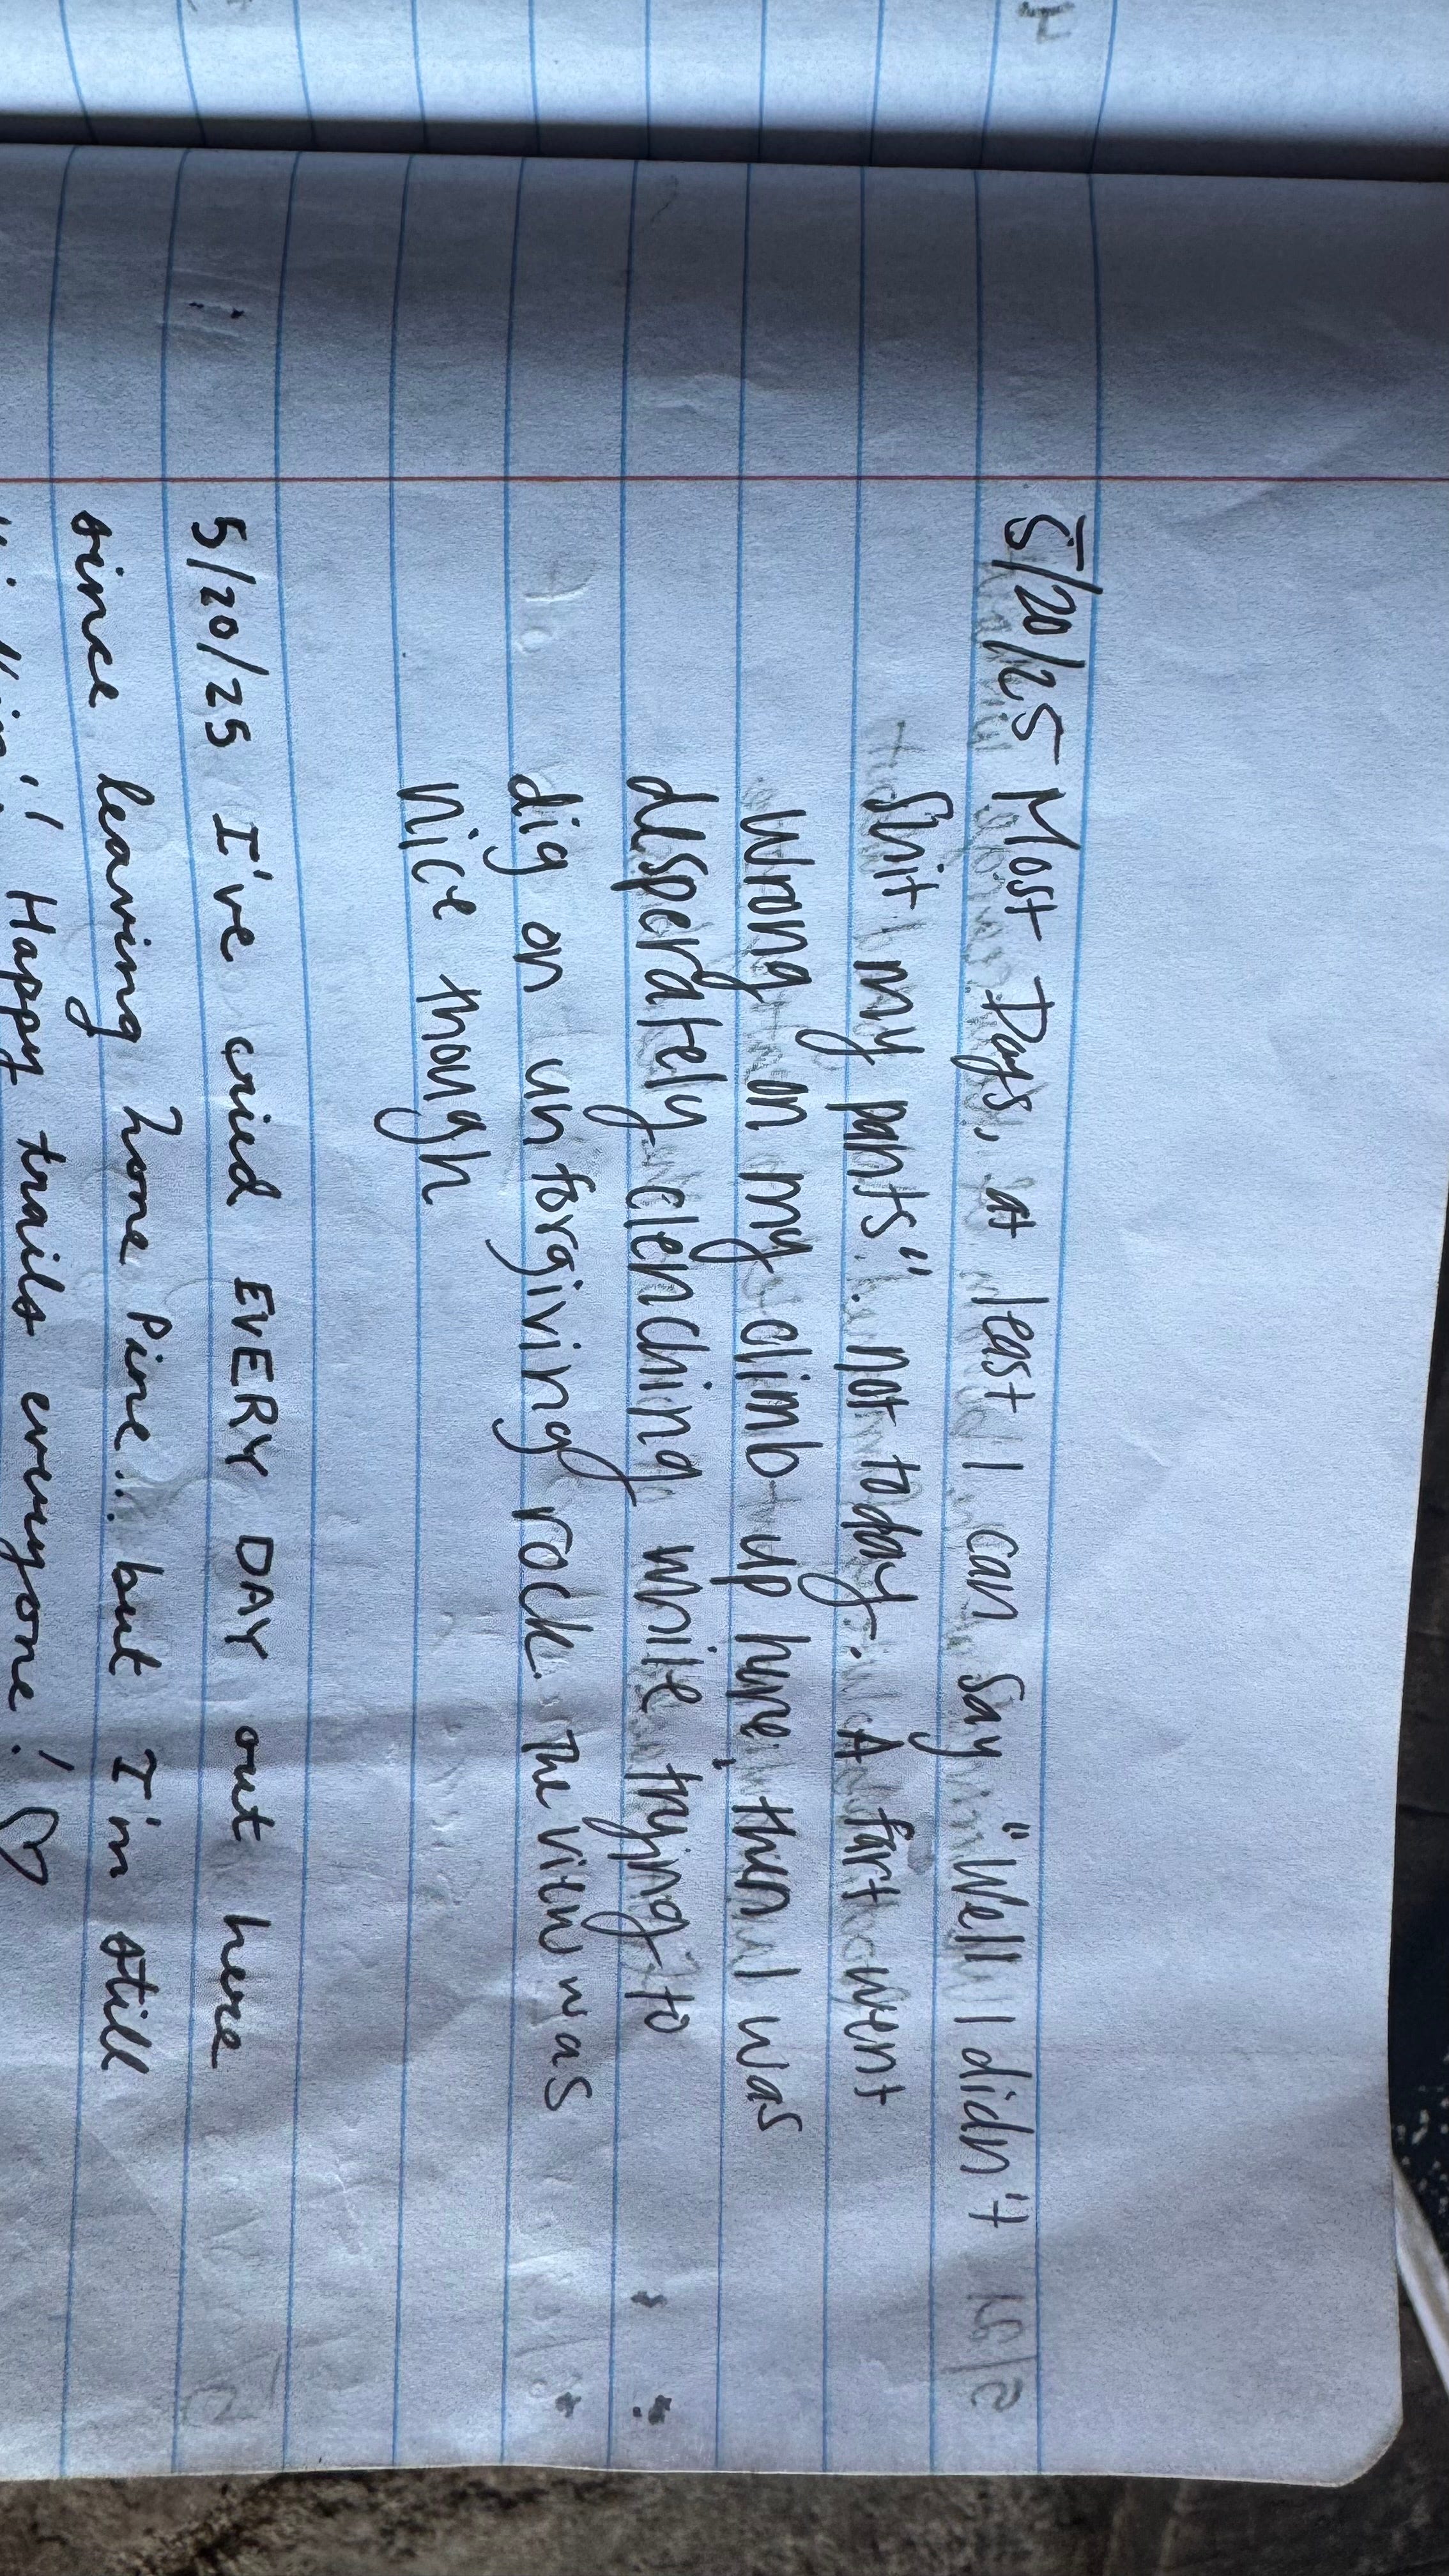 5/20/25 Most Days, at least I can say "Well I didn't
shit my pants". not today. A fart went
wrong on my climb up here, then I was
desperately clenching while trying to
dig an unforgiving rock. The view was
nice though
5/20/25 I've cried EVERY DAY out here
since leaving hone Pine... but I'm still
Happy trails everyone! ♡